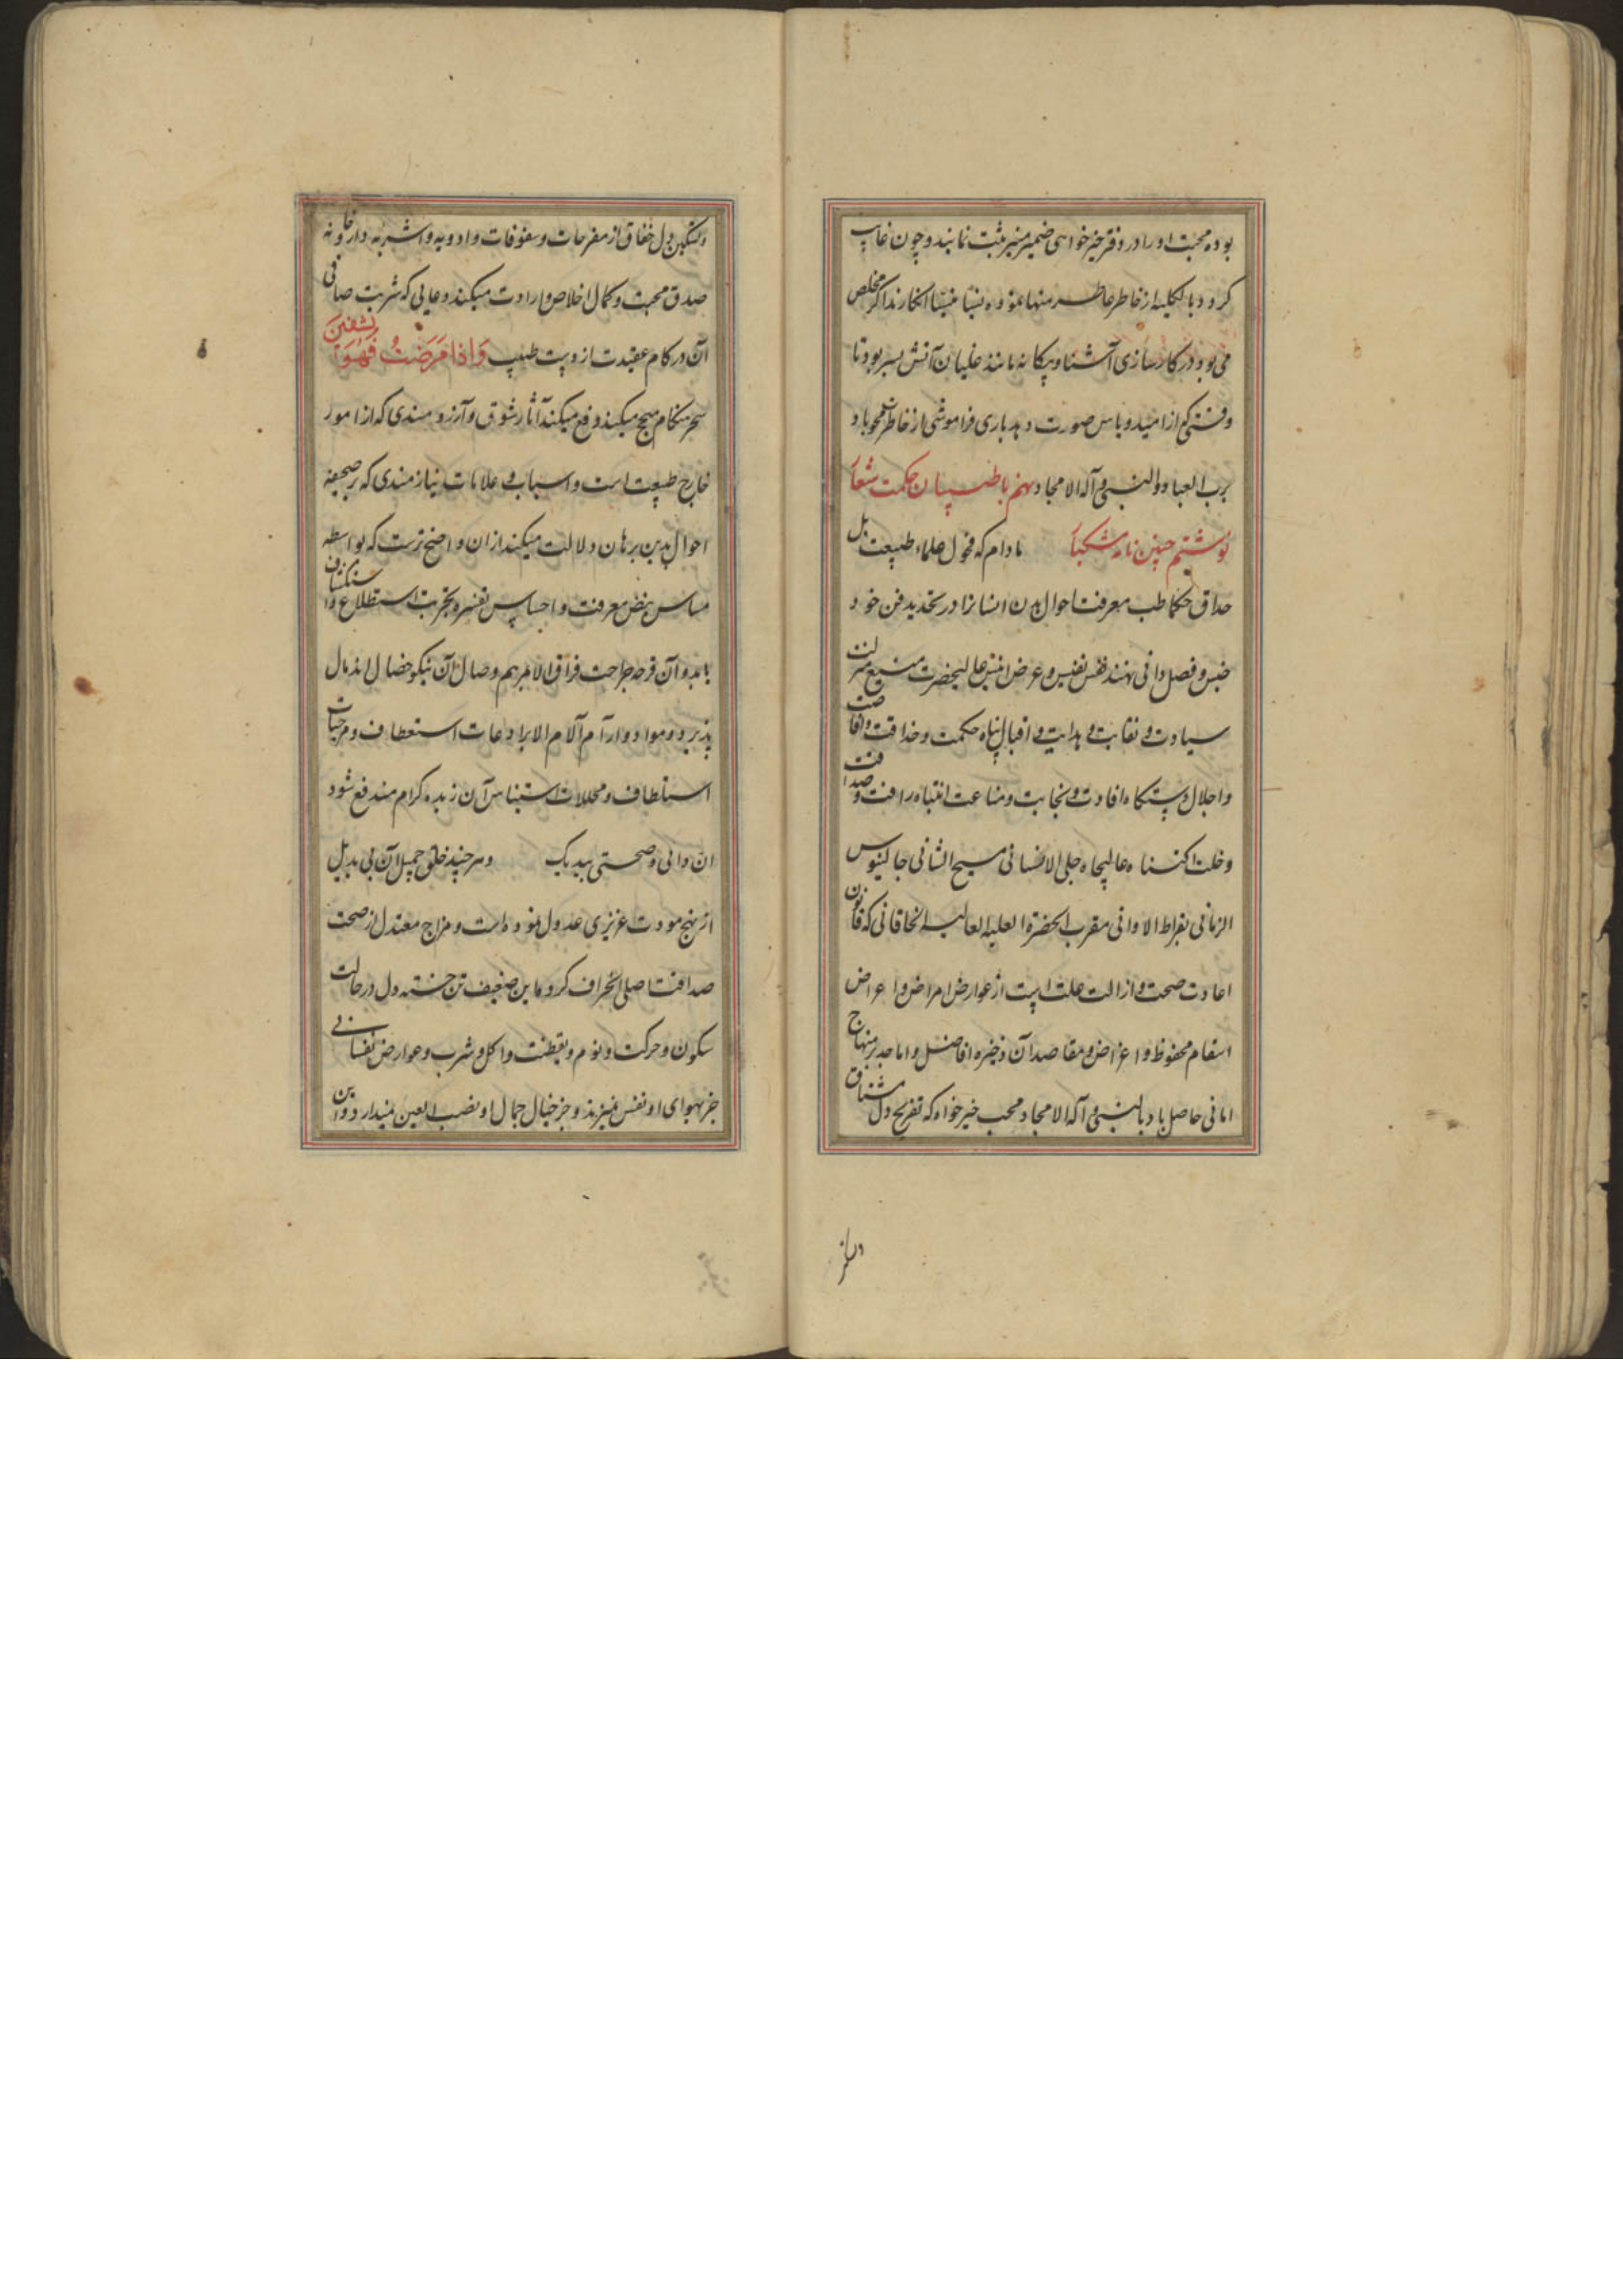 بوده محبت او را در دفتر خیرخواهی ضمیر منیر ثبت نمایند و چون غایب
کردد بالکلیه از خاطر عاطر منها نموده نسیا منسیا انکارند اکر مخلص
می بود در کارسازی آشنا و بیکانه مانند غلیان آتش بسر بود تا
وقتی که از امید و یاس صورت دهد باری فراموشی از خاطرش محو باد
برب العباد و النبی و آله الامجاد نهم با طبیبان حکمت شعار
نوشتیم چنین نامه مشکبار مادام که فحول علماء طبیعت بل
حذاق حکما طب معرفت احوال بدن انسانرا در تحدید فن خود
جنس و فصل وافی نهند نفس نفیس و عرض انیس عالیحضرت منیع منزلت
سیادت و نقابت و هدایت و اقبال پناه حکمت و حذاقت و افاضت
و اجلال دستکاه افادت و نجابت و مناعت انتباه رافت و صداقت
و خلت اکتناه عالیجاه جلی الانسانی مسیح الثانی جالینوس
الزمانی بقراط الاوانی مقرب الحضرة العلیه العالیه الخاقانی که قانون
اعادت صحت و ازالت علت است از عوارض امراض و اعراض
اسقام محفوظ و اعراض و مقاصد آن ذخیره افاضل و اماجد بر منهاج
امانی حاصل باد بالنبی و آله الامجاد محب خیرخواه که تفریح دل مشتاق
و تسکین دل خفاق از مفرحات و سفوفات و ادویه و اشربه دارخانه
صدق محبت و کمال اخلاص و ارادت میکند و دعایی که شربت صافی
آن در کام عقیدت از دست طبیب وَاِذا مَرَضتُ فَهُوَ یَشفینَ
سحر هنکام مهیج میکند و فع میکند آثار شوق و آرزومندی که از امور
خارج طبیعت است و اسباب و علامات نیازمندی که بر صحیفه
احوال بدین برهان دلالت میکند از ان واضح ترست که بواسطه
مساس نبض معرفت و احساس تفسره تجربت استطلاع و استکشاف
یابد و آن قرحه جراحت فراق الا بمرهم وصال آن نیکو خصال اندمال
پذیرد و مواد و ارآم آلام الا برادعات استعطاف و مرخیات
استلطاف و محللات استیناس آن زبده کرام مندفع شود
ان دائی و صحتی بیدیک و هر چند خلق جمیل آن بی بدیل
از نهج مودت عزیزی عدول نموده است و مزاج معتدل از صحت
صداقت اصلی انحراف کرده اما این ضعیف تن خسته دل در حالت
سکون و حرکت و نوم و یقظت و اکل و شرب و عوارض نفسانی
جز بهوای او نفس نمیزند و جز خیال جمال او نصب العین نمیدارد و این